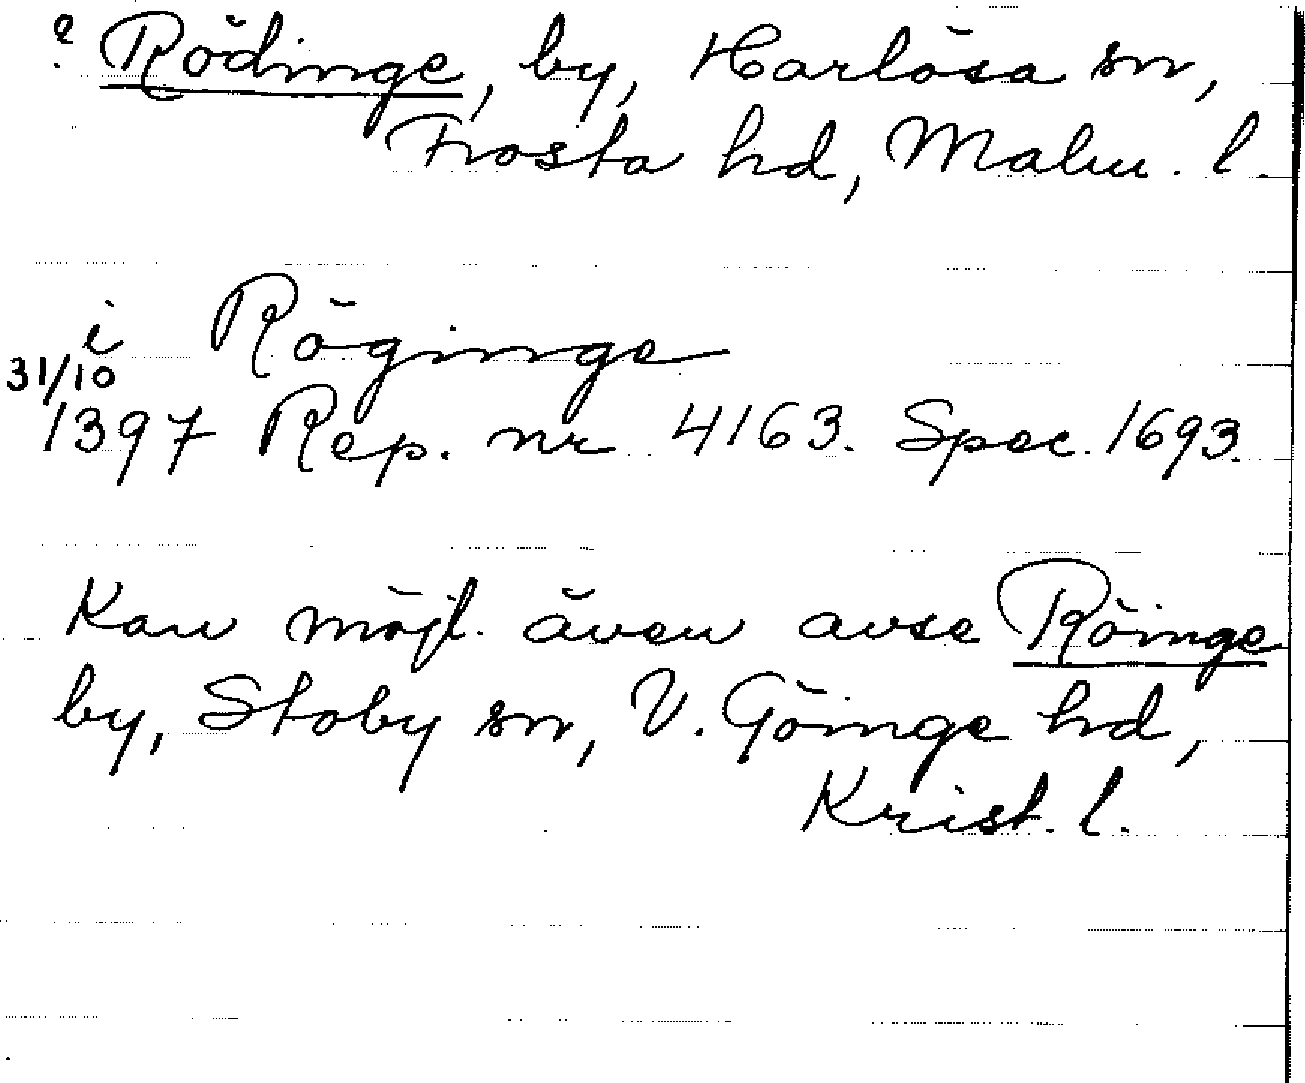 ? Rödinge, by, Harlösa sn,
Frosta hd, Malm. l.
i Röginge
31/10
1397 Rep. nr 4163. Spec. 1693.
Kan möjl. även avse Röinge
by, Stoby sn, V. Göinge hd,
Krist. l.